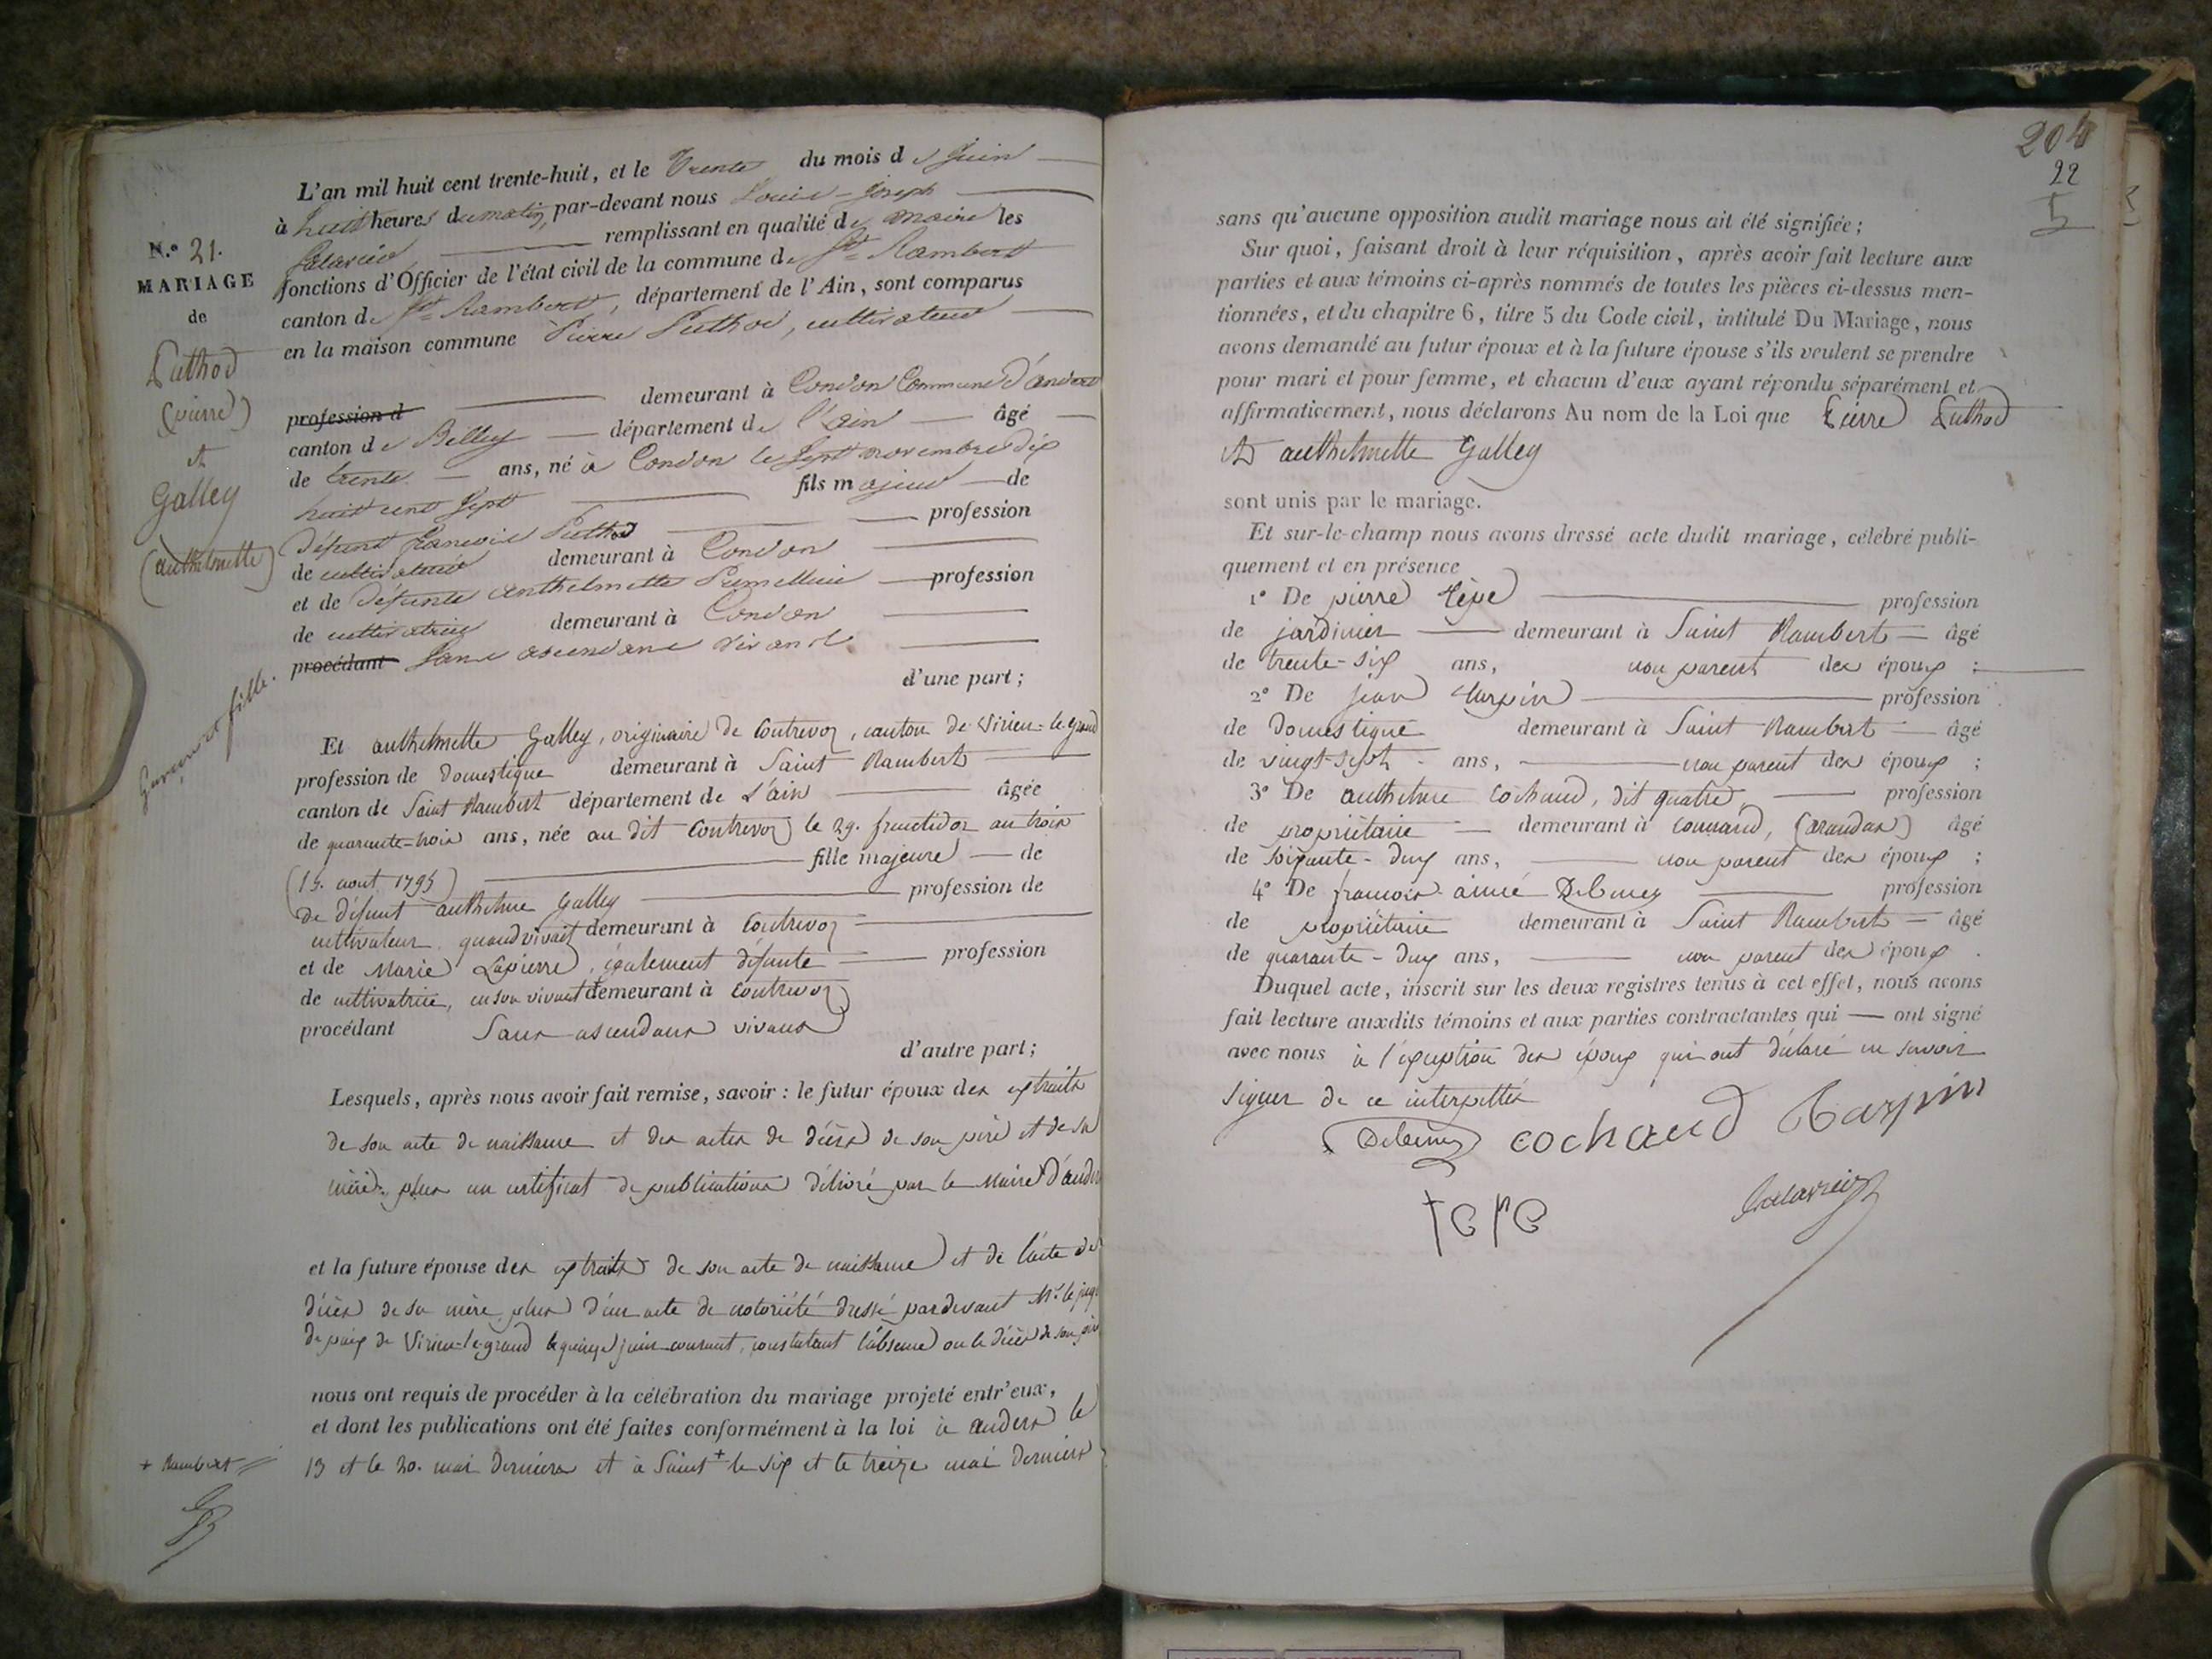 L'an mil huit cent trente-huit, et le Trente du mois de Juin
à huit heures du matin, par-devant nous Louis-Joseph
Galavieu remplissant en qualité de maire les
fonctions d'Officier de l'état civil de la commune de St Rambert
canton de St Rambert, département de l'Ain, sont comparus
en la maison commune Pierre Puthod, cultivateur
N.° 21.
MARIAGE
de
Puthod
(pierre)
et
Galley
(anthelmette)
Garçon et fille.
profession d demeurant à Condon Commune d'andert
canton de Belley département de l'ain âgé
de trente ans, né à Condon le sept novembre dix
huit cent sept fils majeur de
défunt francois Puthod profession
de cultivateur demeurant à Condon
et de défunte anthelmette profession
de cultivatrice demeurant à Condon
procédant sans ascendans vivants.
d'une part;
Et anthelmette Galley, originaire de Contrevoz, canton de Virieu-le-grand
profession de domestique demeurant à Saint Rambert
canton de Saint Rambert département de L'ain âgée
de quarante-trois ans, née au dit Contrevoz le 29. fructidor an trois
(15. aout 1795) fille majeure de
De défunt anthelme Galley profession de
cultivateur quand vivait demeurant à Contrevoz
et de Marie Lapierre, également défunte profession
de cultivatrice, en son vivant demeurant à Contrevoz
procédant Sans ascendans vivans
d'autre part;
Lesquels, après nous avoir fait remise, savoir: le futur époux des extraits
de son acte de naissance et des actes de décès de son père et de sa
mère, plus un certificat de publications délivré par le Maire d'andert
et la future épouse des extraits de son acte de naissance et de l'acte de
décès de sa mère, plus d'un acte de notoriété dressé pardevant Mr. le juge
de paix de Virieu-le-grand le quinze juin courant, constatant l'absence ou le décès de son père
nous ont requis de procéder à la célébration du mariage projeté entr'eux,
et dont les publications ont été faites conformément à la loi à andert le
13 et le 20. mai derniers et à Saint + le six et le treize mai derniers
+ Rambert
204
22
5
sans qu'aucune opposition audit mariage nous ait été signifiée;
Sur quoi, faisant droit à leur réquisition, après avoir fait lecture aux
parties et aux témoins ci-après nommés de toutes les pièces ci-dessus men-
tionnées, et du chapitre 6, titre 5 du Code civil, intitulé Du Mariage, nous
avons demandé au futur époux et à la future épouse s'ils veulent se prendre
pour mari et pour femme, et chacun d'eux ayant répondu séparément et
affirmativement, nous déclarons Au nom de la Loi que Pierre Puthod
et anthelmette Galley
sont unis par le mariage.
Et sur-le-champ nous avons dressé acte dudit mariage, célébré publi-
quement et en présence
1° De pierre tépe profession
de jardinier demeurant à Saint Rambert âgé
de trente-six ans, non parent des époux;
2° De jean tarpin profession
de Domestique demeurant à Saint Rambert âgé
de vingt-sept ans, non parent des époux;
3° De anthelme Cochaud, dit quatre, profession
de propriétaire demeurant à Conand, (arandas) âgé
de soixante-deux ans, non parent des époux;
4° De francois aimé profession
de propriétaire demeurant à Saint Rambert âgé
de quarante-deux ans, non parent des époux.
Duquel acte, inscrit sur les deux registres tenus à cet effet, nous avons
fait lecture auxdits témoins et aux parties contractantes qui ont signé
avec nous à l'exception des époux qui ont déclaré ne savoir
signer de ce interpellés
cochaud Tarpin
tepe Galavieu